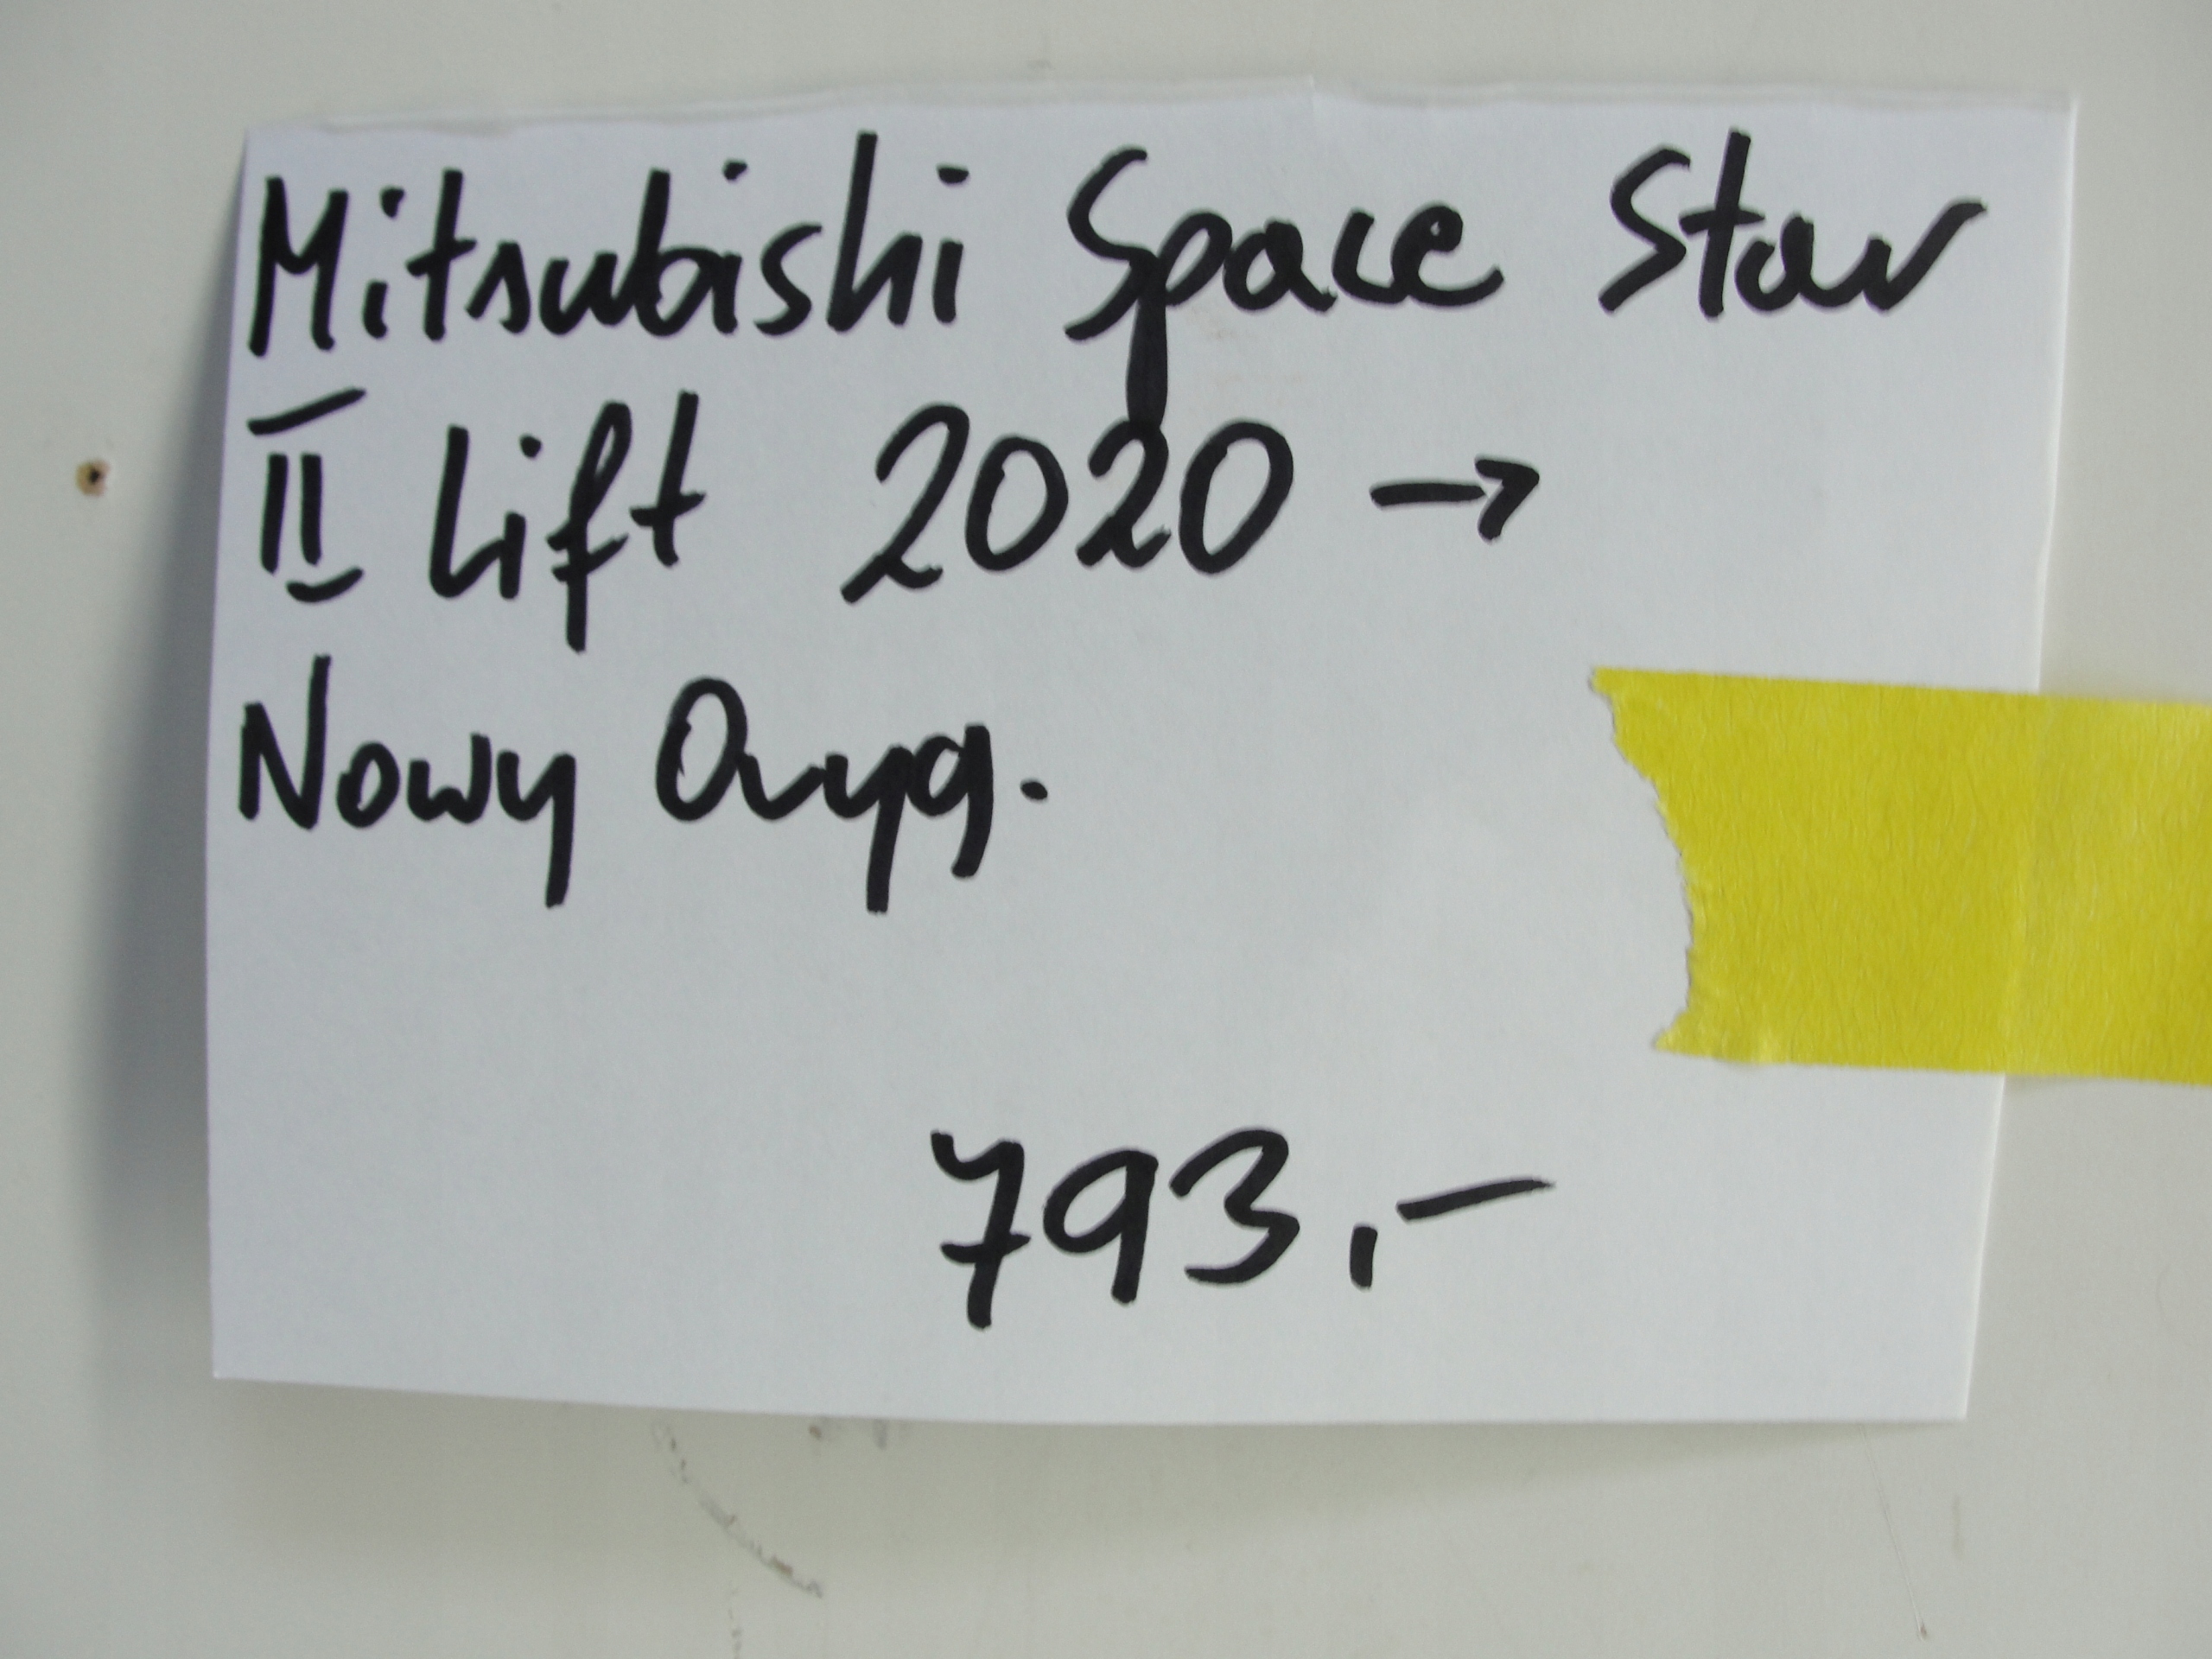 Mitsubishi Space Star
II Lift 2020 →
Nowy Oryg.
793,-